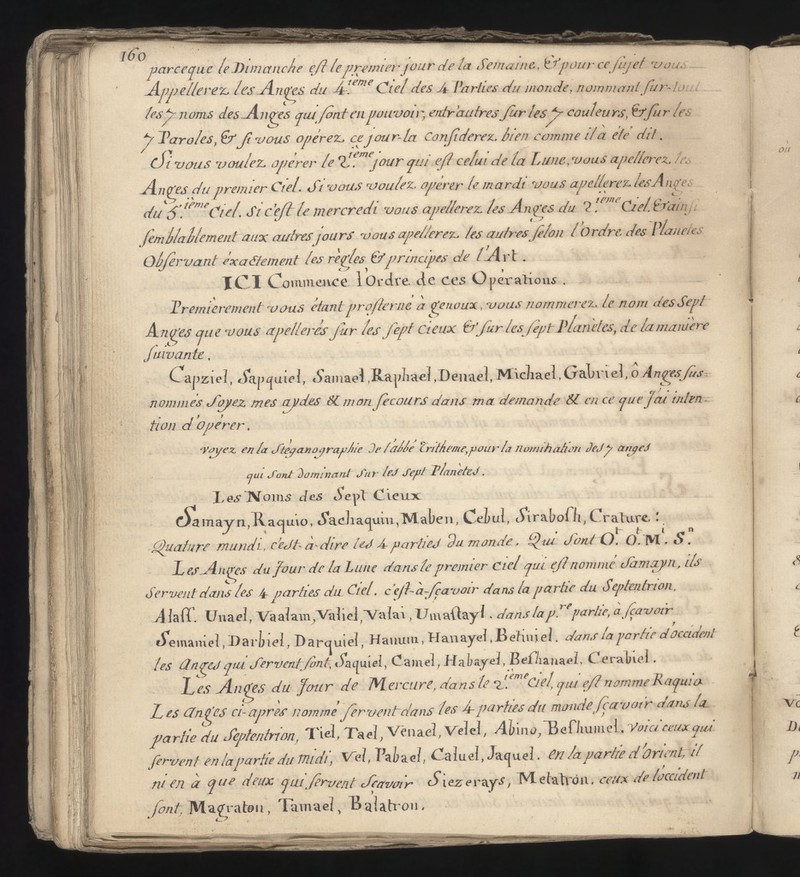 160
parceque le Dimanche est le premier jour de la Semaine, & pour ce sujet vous
Appellerez les Anges du 4.ieme Ciel des 4 Parties du monde, nommant sur-tout
les 7 noms des Anges qui sont en pouvoir, entr'autres sur les 7 couleurs, & sur les
7 Paroles, & si vous opérez, ce jour-la Considerez bien comme il a été dit.
Si vous voulez opérer le 2.ieme jour qui est celui de la Lune, vous apellerez les
Anges du premier Ciel. Si vous voulez opérer le mardi vous apellerez les Anges
du 5.ieme Ciel. Si c'est le mercredi vous apellerez les Anges du 2.ieme Ciel. & ainsi
semblablement aux autres jours vous apellerez les autres selon l'Ordre des Planetes
Observant éxactement les règles & principes de l'Art.
ICI Commence l'Ordre de ces Opérations.
Premierement vous étant prosterné à genoux, vous nommerez le nom des Sept
Anges que vous apellerés sur les sept cieux & sur les sept Planètes, de la manière
suivante.
Capziel, Sapquiel, Samael, Raphael, Denael, Michael, Gabriel, ô Anges sus=
nommés Soyez mes aydes & mon secours dans ma demande & en ce que J'ai inten=
tion d'Opérer.
voyez en la Stéganographie de l'abbé Tritheme, pour la nomination des 7 anges
qui Sont dominant Sur les Sept Planètes.
Les Noms des Sept Cieux
Samayn, Raquio, Sachaquin, Maben, Cebul, Sirabosh, Crature :
Quature mundi, c'est-à-dire les 4 parties du monde. Qui Sont O.t O.t M.i S.n
Les Anges du Jour de la Lune dans le premier Ciel qui est nommé Samayn, ils
Servent dans les 4 parties du Ciel. c'est-à-sçavoir dans la partie du Septentrion,
Alass. Unael, Vaalam, Valiel, Valai, Umastayl. dans la p.re partie, à sçavoir
Semaniel, Darbiel, Darquiel, Hanum, Hanayel, Betiniel. dans la partie d'occident
les Anges qui Servent sont, Saquiel, Camel, Habayel, Beshanael. Cerabiel.
Les Anges du Jour de Mercure, dans le 2.ieme Ciel, qui est nommé Raquia
Les Anges ci-après nommé servent dans les 4 parties du monde sçavoir dans la
partie du Septentrion, Tiel, Tael, Venael, Velel, Abino, Beshumel. Voici ceux qui
servent en la partie du midi, Vel, Pabael, Caluel, Jaquel. en la partie d'orient, il
ni en à que deux qui servent Sçavoir Siezerays, Metatron. ceux de l'occident
sont, Magraton, Tamael, Balatron.